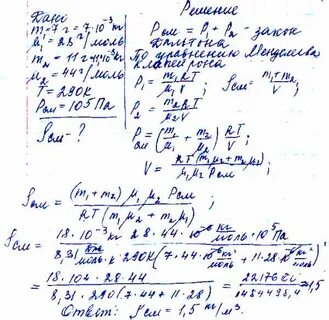 Дано
m₁=7г=7·10⁻³кг
μ₁=28г/моль
m₂=11г=11·10⁻³кг
μ₂=44г/моль
T=290К
Pсм=10⁵Па
ρсм-?
Решение
Pсм=P₁+P₂-закон
Дальтона
По уравнению Менделеева
Клапейрона
P₁=m₁RT/μ₁V; ρсм=m₁+m₂/V;
P₂=m₂RT/μ₂V
Pсм=(m₁/μ₁+m₂/μ₂)RT/V;
V=RT(m₁μ₂+m₂μ₁)/μ₁μ₂Pсм
ρсм=(m₁+m₂)μ₁μ₂Pсм/RT(m₁μ₂+m₂μ₁);
ρсм=18·10⁻³кг·28·44·10⁻⁶кг/моль·10⁵Па/8,31 моль·К 290К(7·44·10⁻⁶кг/моль+11·28·10⁻⁶кг/моль)=
=18·104·28·44/8,31·290(7·44+11·28)=/1484498,4=1,5
Ответ: ρсм=1,5кг/м³.